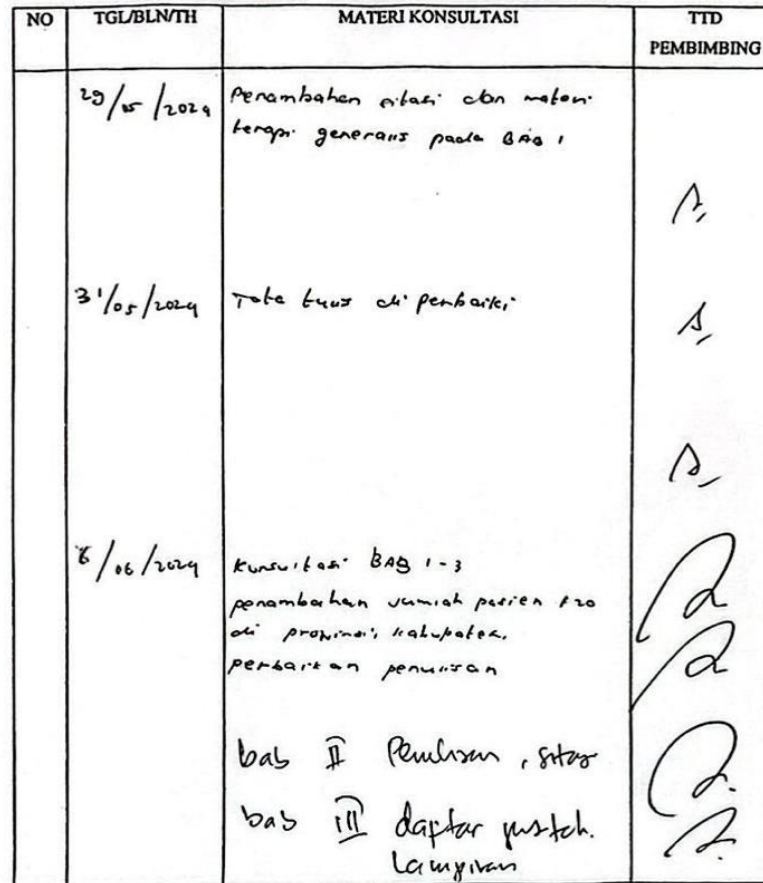 NO TGL/BLN/TH MATERI KONSULTASI TTD
PEMBIMBING
29/05/2024 Penambahan sitasi dan materi
terapi generalis pada BAB 1
31/05/2024 Tata tulis di perbaiki
6/06/2024 Konsultasi BAB 1-3
penambahan jumlah pasien F20
di propinsi, kabupaten,
perbaikan penulisan
bab II Penulisan, sitasi
bab III daftar pustak.
Lampiran